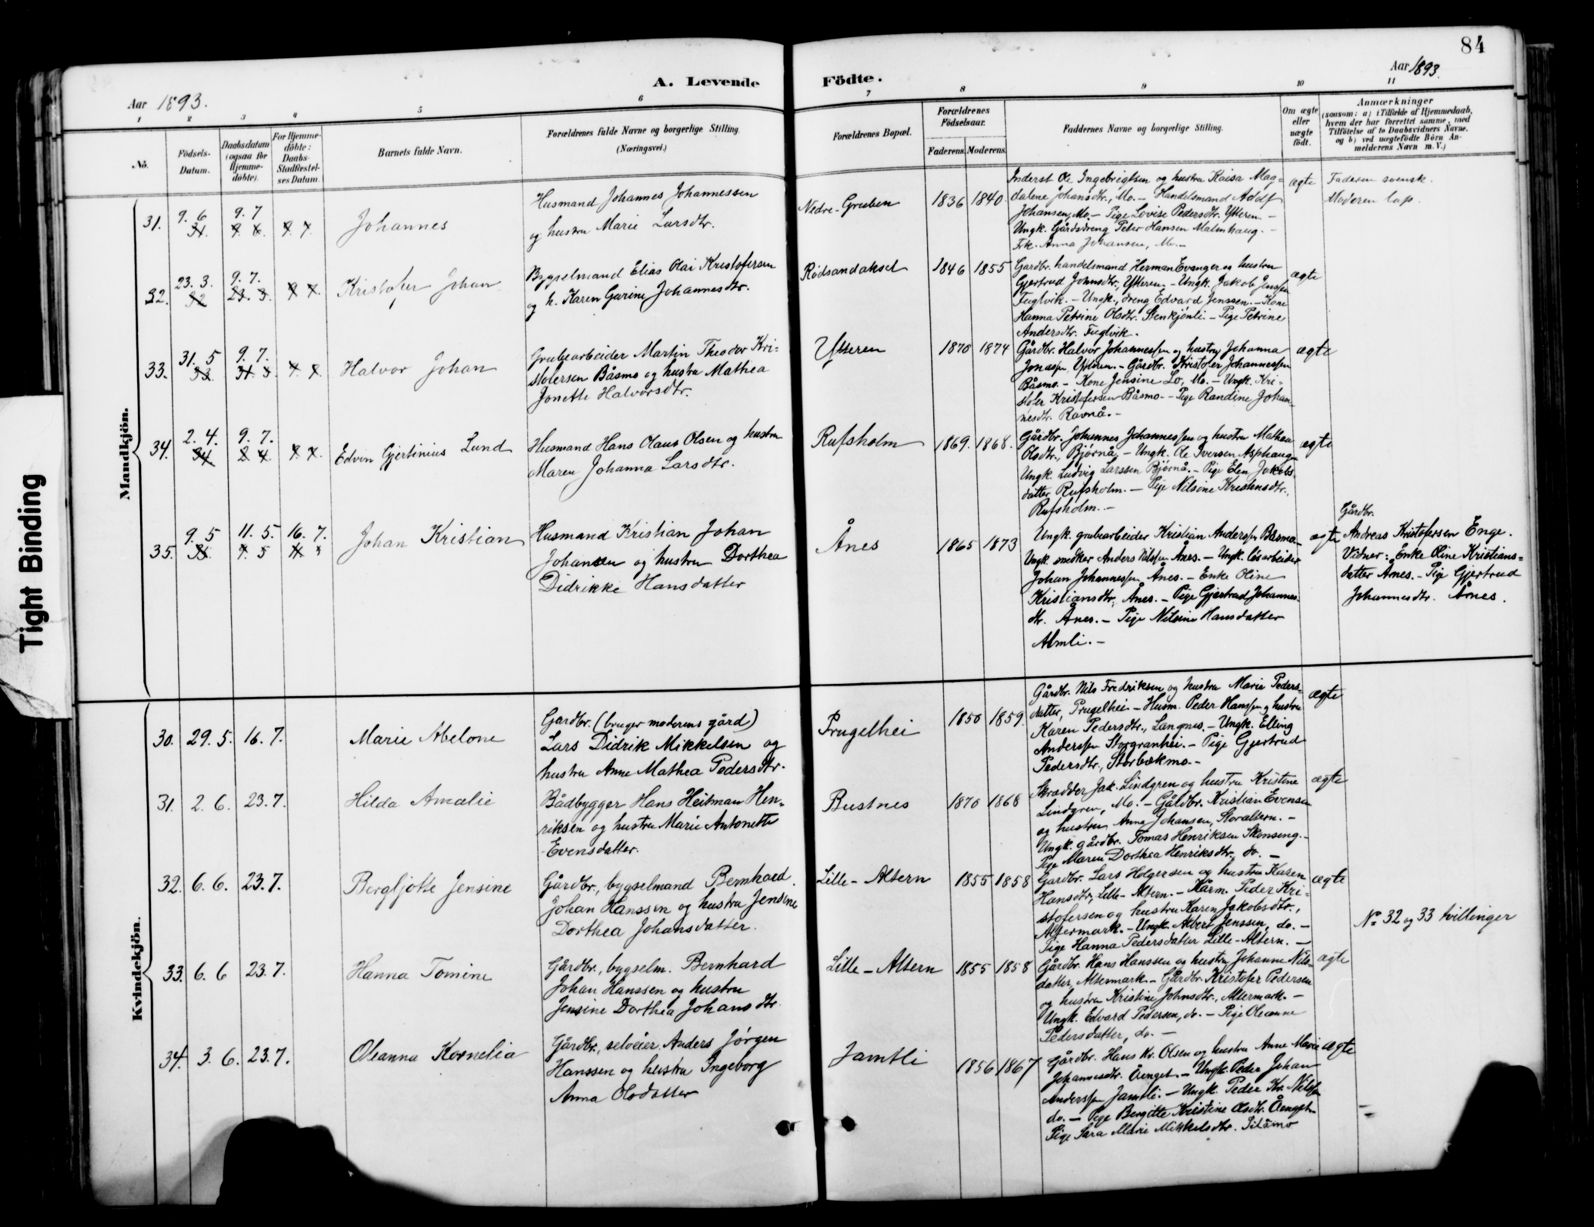 84
A. Levende Födte.
Aar 1893.
Aar 1893
1 2 3 4 5 6 7 8 9 10 11
No.
Födsels-
Datum.
Daabsdatum
(ogsaa for
Hjemme-
døbte).
For Hjemme-
döbte:
Daabs-
Stadfæstel-
ses Datum.
Barnets fulde Navn.
Forældrenes fulde Navne og borgerlige Stilling.
(Næringsvei.)
Forældrenes Bopæl.
Forældrenes
Födselsaar.
Faderens. Moderens.
Faddernes Navne og borgerlige Stilling.
Om ægte
eller
uægte
født.
Anmærkninger
(saasom: a) i Tilfælde af Hjemmedaab,
hvem der har forrettet samme, med
Tilföielse af to Daabsvidners Navne,
og b) ved uægtefödte Börn An-
melderens Navn m. V.)
Mandkjön.
31. 9. 6 9. 7
Johannes
Husmand Johannes Johannessen
og hustru Marie Larsdtr.
Nedre-Gruben
1836 1840.
Inderst Ole Ingebrigtsen og hustru Kaisa Mag-
dalene Johansdtr., Mo. – Handelsmand Adolf
Johansen, Mo. – Pige Lovise Pedersdtr. Ytteren. –
Ungk. Gårdsdreng Peter Hansen Malmhaug. –
Frk. Anna Johansen, Mo. –
ægte
Faderen svensk.
Moderen lap.
32. 23. 3. 9. 7.
Kristofer Johan
Bygselmand Elias Olai Kristofersen
og h. Karen Garine Johannesdtr.
Rødsandaksel
1846 1855
Gardbr. handelsmand Herman Evanger og hustru
Gjertrud Johnsdtr., Ytteren. – Ungk. Jakob Jenssen
Fuglvik. – Ungk., dreng Edvard Jenssen. – Kone
Hanna Petrine Olsdtr. Stenkjønli – Pige Petrine
Andersdtr. Fuglvik. –
ægte
33. 31. 5 9. 7.
Halvor Johan
Grubearbeider Martin Theodor Kri-
stofersen Båsmo og hustru Mathea
Jonette Halvorsdtr.
Ytteren
1870 1874
Gårdbr. Halvor Johannessen og hustru Johanna
Gårdbr. Kristofer Johannessen
Båsmo. – Kone Jensine Mo. – Ungk. Kri-
stofer Kristofersen Båsmo – Pige Randine Johan-
nesdtr. Ravnå. –
ægte
34. 2. 4. 9. 7.
Edvin Gjertinius Lund
Husmand Hans Olaus Olsen og hustru
Maren Johanna Larsdtr.
Rufsholm
1869. 1868.
Gårdbr. Johannes Johannessen og hustru Mathea
Olsdtr., Bjørnå, – Ungk. Ole Iversen Asphaugen
Ungk. Ludvig Larssen Bjørnå. – Pige Elen Jakobs
datter Rufsholm. – Pige Nilsine Kristensdtr.,
Rufsholm. –
ægte
35. 9. 5 11. 5. 16. 7.
Johan Kristian
Husmand Kristian Johan
Johansen og hustru Dorthea
Didrikke Hansdatter
Ånes
1865 1873
Ungk. grubearbeider Kristian Anderssen Båsmo
Ungk. snedker Anders Nilssen Ånes. – Ungk. løsarbeider
Johan Johannessen Ånes. – Enke Oline
Kristiansdtr., Ånes. – Pige Gjertrud Johannes-
dtr. Ånes. – Pige Nilsine Hansdatter
Almli. –
ægte
Gårdbr.
Andreas Kristofersen Enge.
Vidner: Enke Oline Kristians-
datter Ånes. – Pige Gjertrud
Johannesdtr. Ånes.
Kvindekjön.
30. 29. 5. 16. 7.
Marie Abelone
Gardbr. (bruger moderens gård)
Lars Didrik Mikkelsen og
hustru Anne Mathea Pedersdtr.
Prugelhei
1850 1859.
Gårdbr. Nils Fredriksen og hustru Marie Peders-
datter, Prugelhei. – Husm. Peder Hanssen og hustru
Karen Pedersdtr., Langnes. – Ungk. Elling
Anderssen Storgranhei. – Pige Gjertrud
Pedersdtr., Storbækmo. –
ægte
31. 2. 6. 23. 7.
Hilda Amalie
Bådbygger Hans Heitman Hen-
riksen og hustru Marie Antonette
Evensdatter.
Bustnes
1870 1868
Skrædder Jak. Lindgren og hustru Kristine
Lindgren, Mo. – Gårdbr. Kristian Evensen
og hustru Anna Johansen, Storaltern. –
Ungk. gårdbr. Tomas Henriksen Stenseng. –
Pige Maren Dorthea Henriksdtr., do. –
ægte
32. 6. 6. 23. 7.
Bergljotte Jensine
Gårdbr., bygselmand Bernhard
Johan Hanssen og hustru Jensine
Dorthea Johansdatter.
Lille-Altern
1855 1858
Gardbr. Lars Holgersen og hustru Karen
Hansdtr., Lille-Altern. – Husm. Peder Kri-
stofersen og hustru Karen Jakobsdtr.,
Altermark. – Ungk. Albert Jenssen, do. –
Pige Hanna Pedersdatter Lille-Altern. –
ægte
No 32 og 33 tvillinger
33. 6. 6 23. 7.
Hanna Tomine
Gårdbr., bygselm. Bernhard
Johan Hanssen og hustru
Jensine Dorthea Johansdtr.
Lille-Altern
1855 1858
Gårdbr. Hans Hanssen og hustru Johanne Nils-
datter, Altermark. – Gårdbr. Kristofer Pedersen
og hustru Kristine Johnsdtr., Altermark. –
Ungk. Edvard Pedersen, do. – Pige Oleanne
Pedersdatter, do. –
ægte
34. 3. 6. 23. 7.
Oleanna Kornelia
Gårdbr., selveier Anders Jørgen
Hanssen og hustru Ingeborg
Anna Olsdatter
Jamtli
1856 1867
Gårdbr. Hans Kr. Olsen og hustru Anne Marie
Johannesdtr. Åenget. – Ungk. Peder Johan
Anderssen Jamtli. – Ungk. Peder Kr. Nilssen
do. – Pige Bergitte Kristine Olsdtr. Åenget. –
Pige Sara Marie Mikkelsdtr.
ægte
Tight Binding